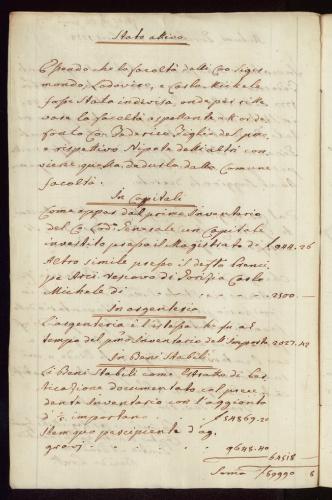 Stato attivo
Essendo che la facoltà delli Co: Sigis=
mondo, Lodovico, e Carlo Michele
fosse stata indivisa, onde per rile
vare la facoltà aspettante al
Co: Federico Figlio del
e rispettivo Nipote degli altri con
viene questa dedurla dalla Comune
facoltà.
In Capitali
Come appar dal primo Inventario
del Co: Lod: un Capitale
investito presso il Magistrato di f. 944.26
Altro simile presso il Princi
pe Arci Vescovo di Gorizia Carlo
Michele di 2500.
In argenteria
L'argenteria è l'istessa che fu al
tempo del Inventario dell'Importo 2027.42
In Beni Stabili
Li Beni Stabili come Estratto di Cer
tificazione documentato col prece
dente Inventario con l'aggionta
d' importano f. 54869.20
Item per
9648.40
64518
Soma f. 69990 8